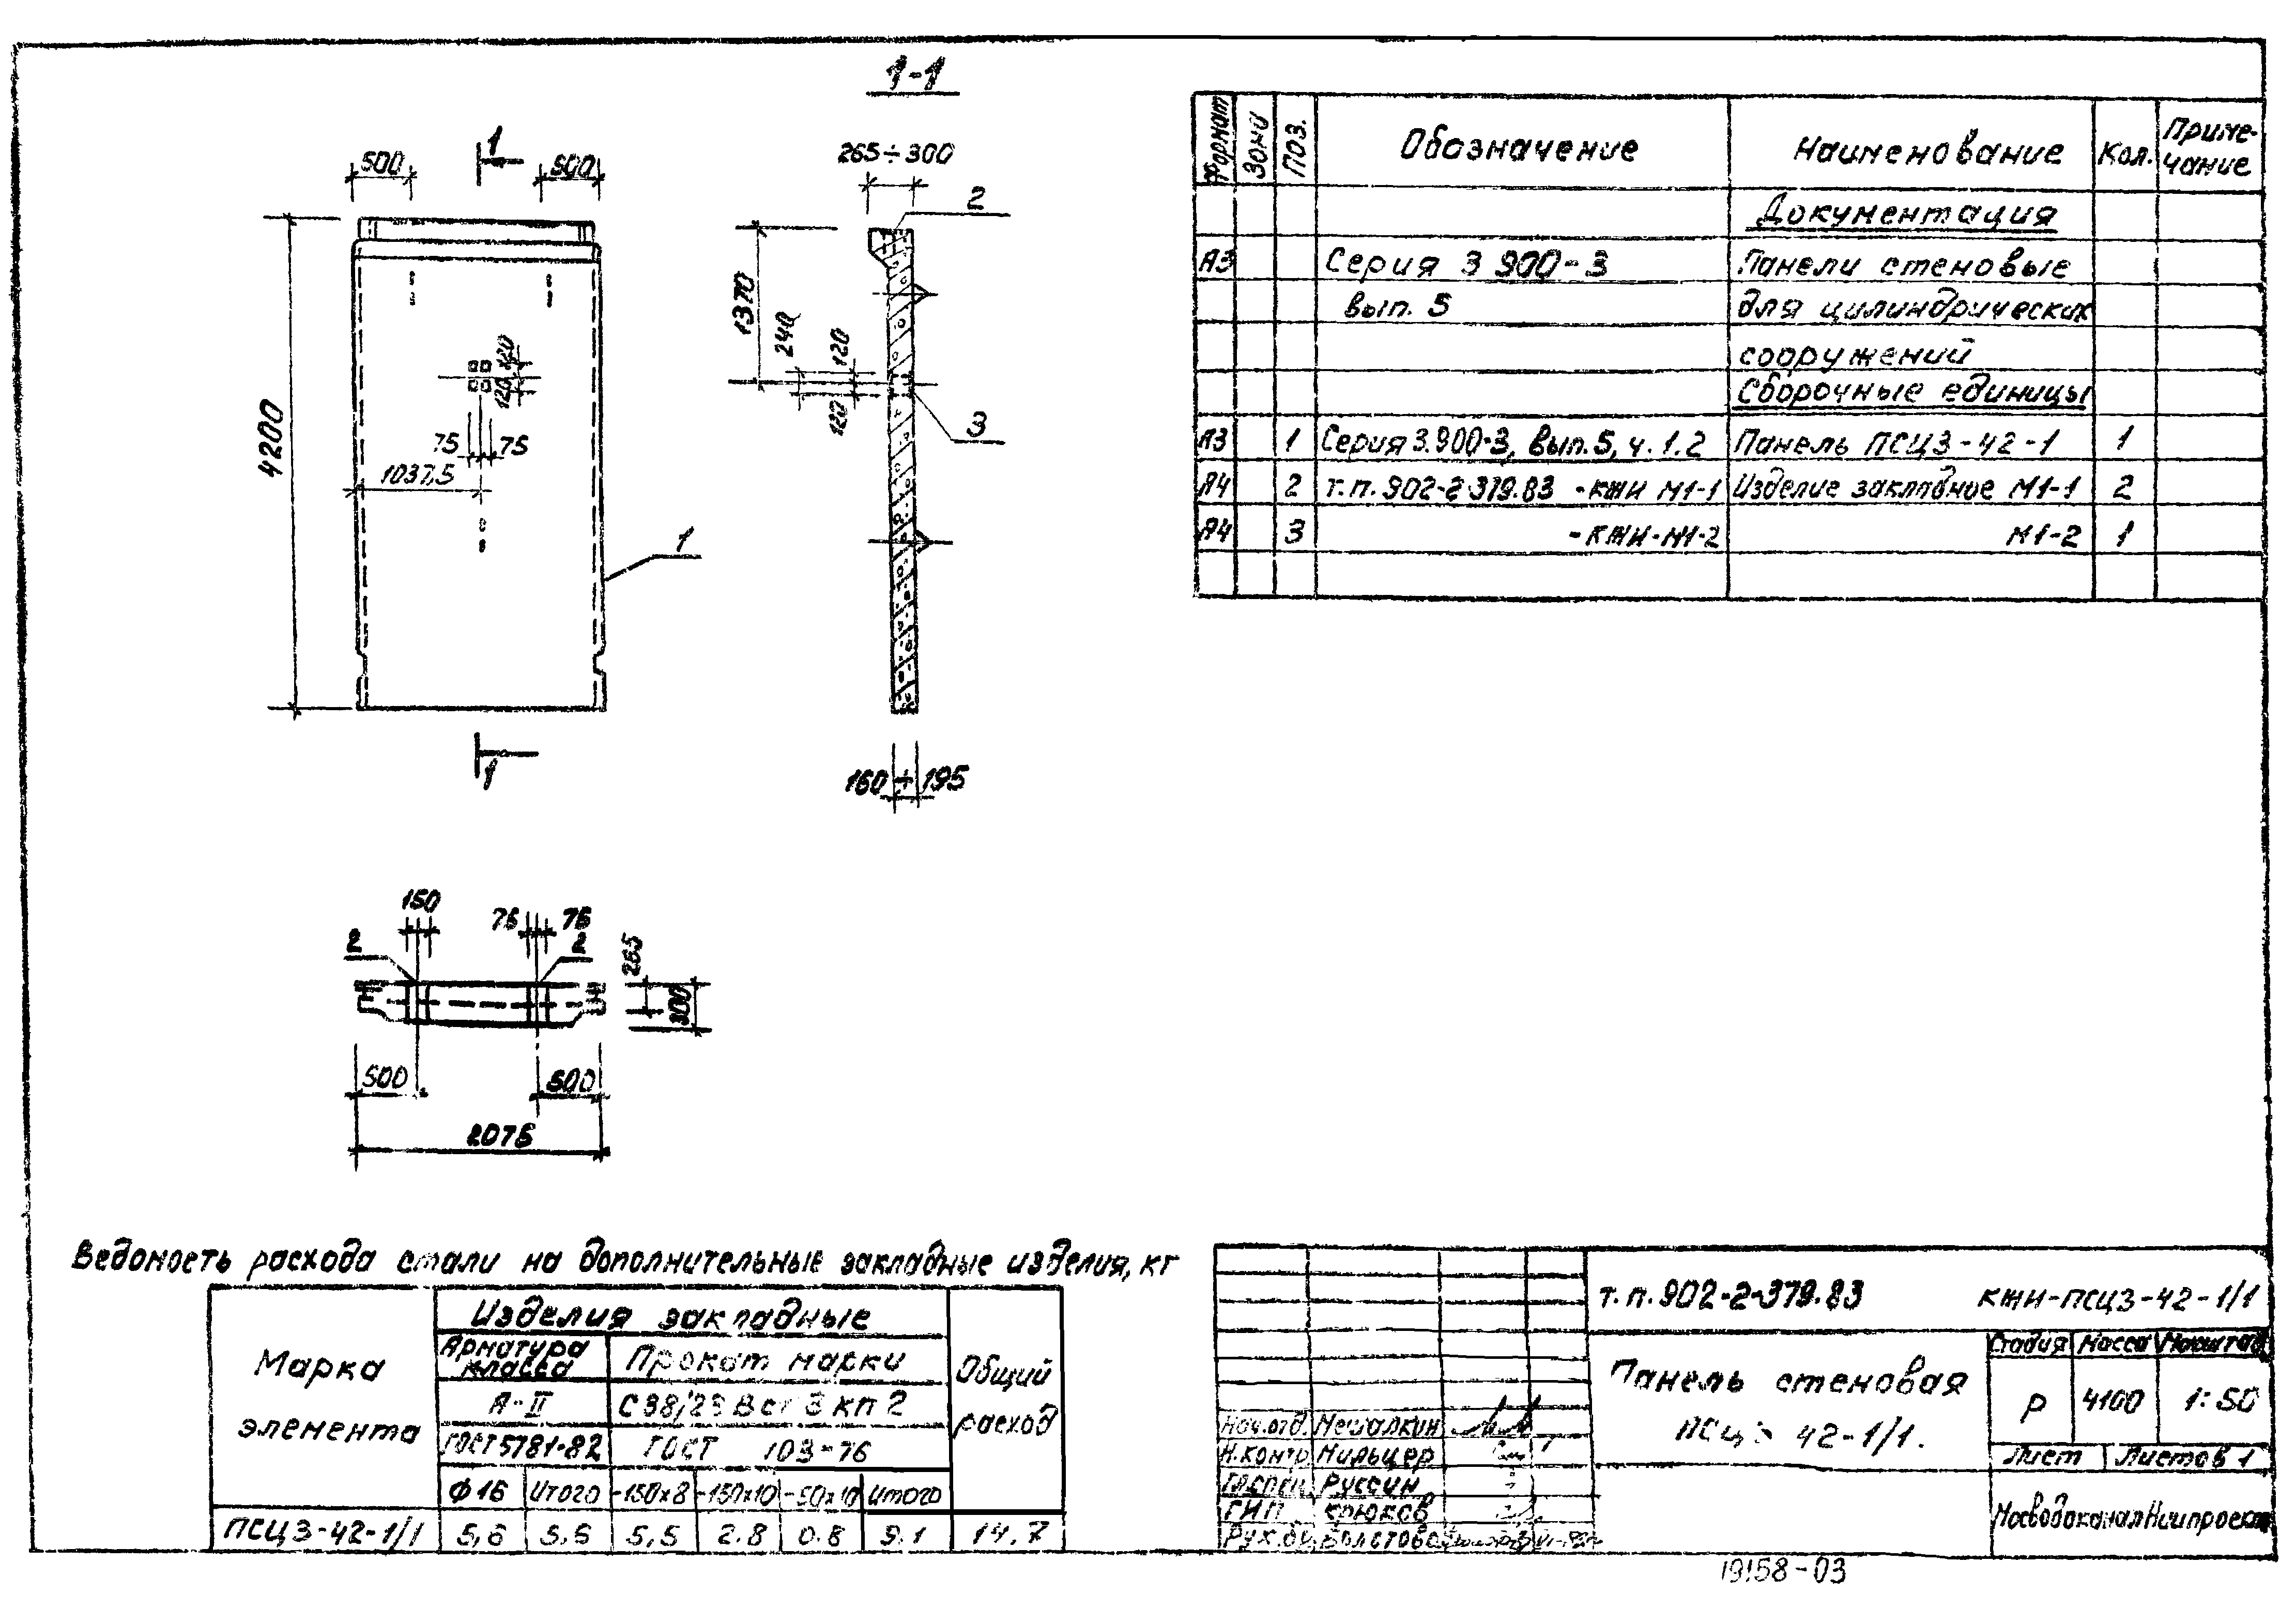 1-1
1
500
500
4200
120
120
75
75
1037,5
1
1
265÷300
2
1370
240
120
120
3
160÷195
150
75
75
2
2
265
300
500
500
2075
Формат
Зона
Поз.
Обозначение
Наименование
Кол.
Приме-
чание
Документация
А3 Серия 3 900-3 Панели стеновые
вып. 5 для цилиндрических
сооружений
Сборочные единицы
А3 1 Серия 3.900-3, вып. 5, ч. 1.2 Панель ПСЦ3-42-1 1
А4 2 т.п. 902-2-379.83 -КЖИ М1-1 Изделие закладное М1-1 2
А4 3 -КЖИ-М1-2 М1-2 1
Ведомость расхода стали на дополнительные закладные изделия, кг
Марка
элемента
Изделия закладные
Арматура
класса
Прокат марки
Общий
расход
А-II
С38/23 В ст 3 кп 2
ГОСТ 5781-82
ГОСТ 103-76
Ф16 Итого -150х8 -150х10 -50х10 Итого
ПСЦ3-42-1/1 5,6 5,6 5,5 2.8 0.8 9.1 14.7
т.п. 902-2-379.83 КЖИ-ПСЦ3-42-1/1
Панель стеновая
ПСЦ3 42-1/1.
Стадия Масса Масштаб
Р 4100 1:50
Лист Листов 1
МосводоканалНИИпроект
Нач.отд. Мешалкин
Н.контр Мильцер
Гл.спец Руссин
ГИП Крюков
Рук.бр.
19158-03